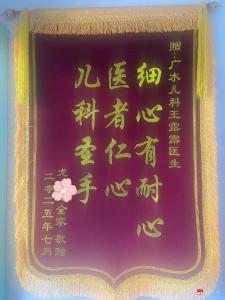 赠：广水儿科王露露医生
细心有耐心
医者仁心
儿科圣手
龙 全家 敬赠
二零二五年七月